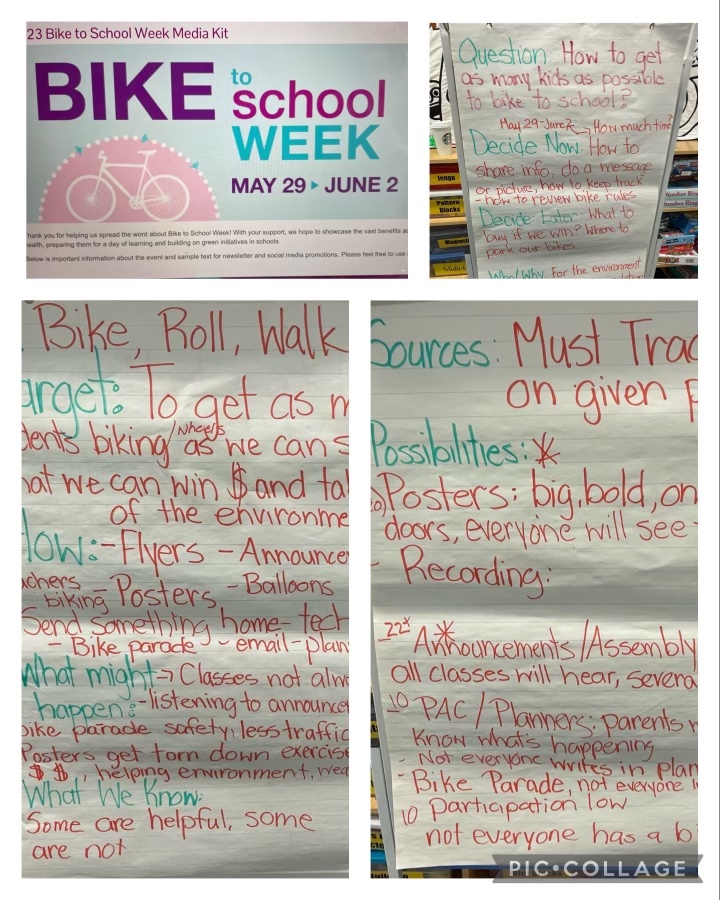 23 Bike to School Week Media Kit
BIKE to
school
WEEK
MAY 29 ▸ JUNE 2
hank you for helping us spread the word about Bike to School Week! With your support, we hope to showcase the vast benefits
ealth, preparing them for a day of learning and building on green initiatives in schools.
Below is important information about the event and sample text for newsletter and social media promotions. Please feel free to use
Question: How to get
as many kids as possible
to bike to school?
May 29-June 2 → How much time?
Decide Now: How to
share info, do a message
or picture, how to keep track
- how to review bike rules
Decide Later: What to
buy if we win? Where to
park our bikes
Who/Why: For the environment
Jenga
Pattern
Blocks
Bike, Roll, Walk
arget: To get as m
dents biking/wheels as we can s
hat we can win $ and ta
of the environme
How: - Flyers - Announce
achers - Posters - Balloons
biking
Send something home - tech
- Bike parade - email - plan
What might → Classes not alw
happen: - listening to announce
bike parade safety, less traffic
Posters get torn down exercise
$ $, helping environment, wea
What We Know:
Some are helpful, some
are not
Sources: Must Trac
on given p
Possibilities: *
Posters: big, bold, on
doors, everyone will see
- Recording:
22* Announcements/Assembly
all classes will hear, severa
10 PAC/Planners: parents
Know what's happening
- Not everyone writes in plan
- Bike Parade, not everyone
10 participation low
not everyone has a bi
PIC•COLLAGE